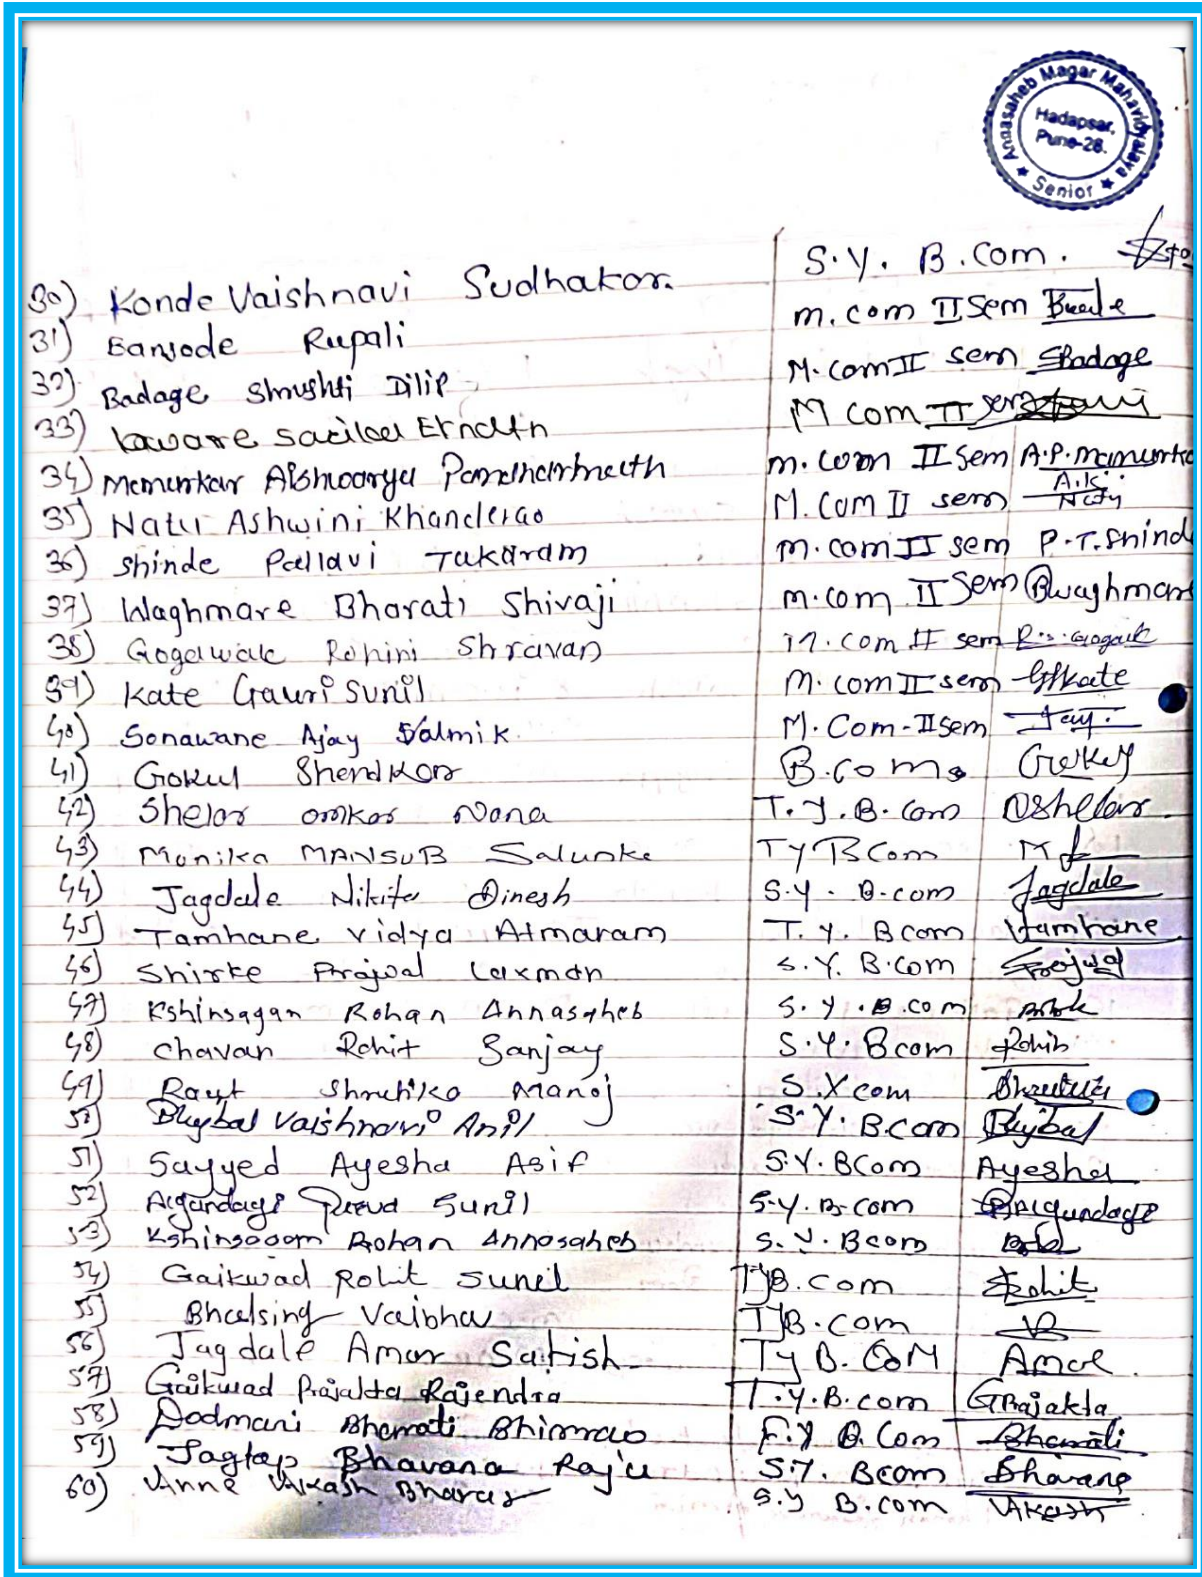 Annasaheb Magar Mahavidyalaya
Hadapsar,
Pune-28.
Senior
30) Konde Vaishnavi Sudhakar. S.Y. B.Com.
31) Bansode Rupali m.com II Sem
32) Badage Shrushti Dilip M.com II sem SBadage
33) M com II sem
34) Memunkar m.com II Sem A.P.
35) Natu Ashwini Khanderao M.Com II sem A.K.
36) Shinde Pallavi Tukaram m.com II sem P.T.Shind
37) Waghmare Bharati Shivaji m.com II Sem Bwaghmar
38) Gogawale Rohini Shravan M.com II sem
39) Kate Gauri Sunil M.com II sem GSKate
40) Sonawane Ajay Valmik M.Com-II sem
41) Gokul Shendkar B.com.
42) Shelar omkar Nana T.Y.B.Com OShelar
43) Monika MANSUB Salunke TY BCom
44) Jagdale Nikita Dinesh S.Y. B.com Jagdale
45) Tamhane vidya Atmaram T.Y. Bcom Vtamhane
46) Shirke Prajwal Laxman S.Y. B.Com Prajwal
47) Kshirsagar Rohan Annasaheb S.Y.B.com
48) Chavan Rohit Sanjay S.Y.Bcom Rohit
49) Raut Shrutika Manoj S.Y com Shrutika
50) Bhujbal Vaishnavi Anil S.Y. B.com Bhujbal
51) Sayyed Ayesha Asif S.Y.BCom Ayesha
52) Algundagi Sunil S.Y.B.com
53) Kshirsagar Rohan Annasaheb S.Y.Bcom
54) Gaikwad Rohit Sunil TYB.com Rohit
55) Bhalsing Vaibhav TYB.com
56) Jagdale Amar Satish TY B.COM
57) Gaikwad Prajakta Rajendra T.Y.B.com GPrajakta
58) Dodmani Bharati Bhimrao F.Y B.Com Bharati
59) Jagtap Bhavana Raju S.Y. Bcom Bhavana
60) Vikash S.Y B.com Vikash